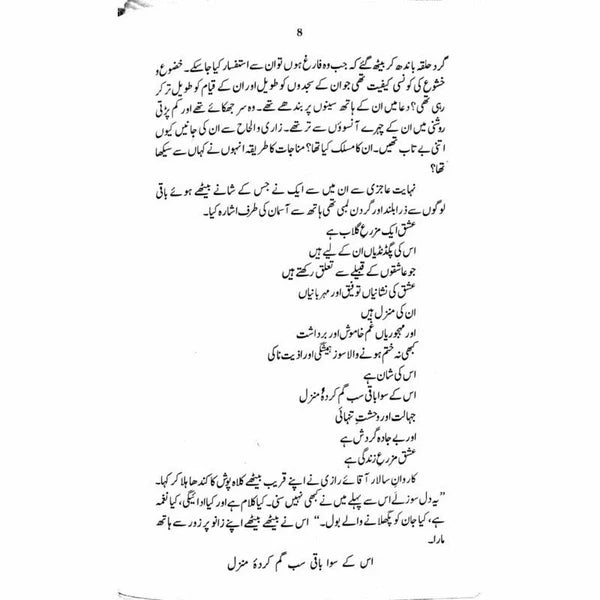 8
گرد حلقہ باندھ کر بیٹھ گئے کہ جب وہ فارغ ہوں تو ان سے استفسار کیا جا سکے۔ خضوع و
خشوع کی کونسی کیفیت تھی جو ان کے سجدوں کو طویل اور ان کے قیام کو طویل تر کر
رہی تھی؟ دعا میں ان کے ہاتھ سینوں پر بندھے تھے۔ وہ سر جھکائے تھے اور کم پڑتی
روشنی میں ان کے چہرے آنسوؤں سے تر تھے۔ زاری و الحاح سے ان کی جانیں کیوں
اتنی بے تاب تھیں۔ ان کا مسلک کیا تھا؟ مناجات کا طریقہ انہوں نے کہاں سے سیکھا
تھا؟
نہایت عاجزی سے ان میں سے ایک نے جس کے شانے بیٹھے ہوئے باقی
لوگوں سے ذرا بلند اور گردن لمبی تھی ہاتھ سے آسمان کی طرف اشارہ کیا۔
عشق ایک مزرعِ گلاب ہے
اس کی پگڈنڈیاں ان کے لیے ہیں
جو عاشقوں کے قبیلے سے تعلق رکھتے ہیں
عشق کی نشانیاں توفیق اور مہربانیاں
ان کی منزل ہیں
اور مہجوریاں غم خاموش اور برداشت
کبھی نہ ختم ہونے والا سوز ہمیشگی اور اذیت ناکی
اس کی شان ہے
اس کے سوا باقی سب گم کردۂ منزل
جہالت اور وحشتِ تنہائی
اور بے جادہ گردش ہے
عشق مزرعِ زندگی ہے
کاروان سالار آقائے رازی نے اپنے قریب بیٹھے کلاہ پوش کا کندھا ہلا کر کہا۔
”یہ دل سوز لَے اس سے پہلے میں نے کبھی نہیں سنی۔ کیا کلام ہے اور کیا ادائیگی، کیا نغمہ
ہے، کیا جان کو پگھلانے والے بول۔“ اس نے بیٹھے بیٹھے اپنے زانو پر زور سے ہاتھ
مارا۔
اس کے سوا باقی سب گم کردۂ منزل